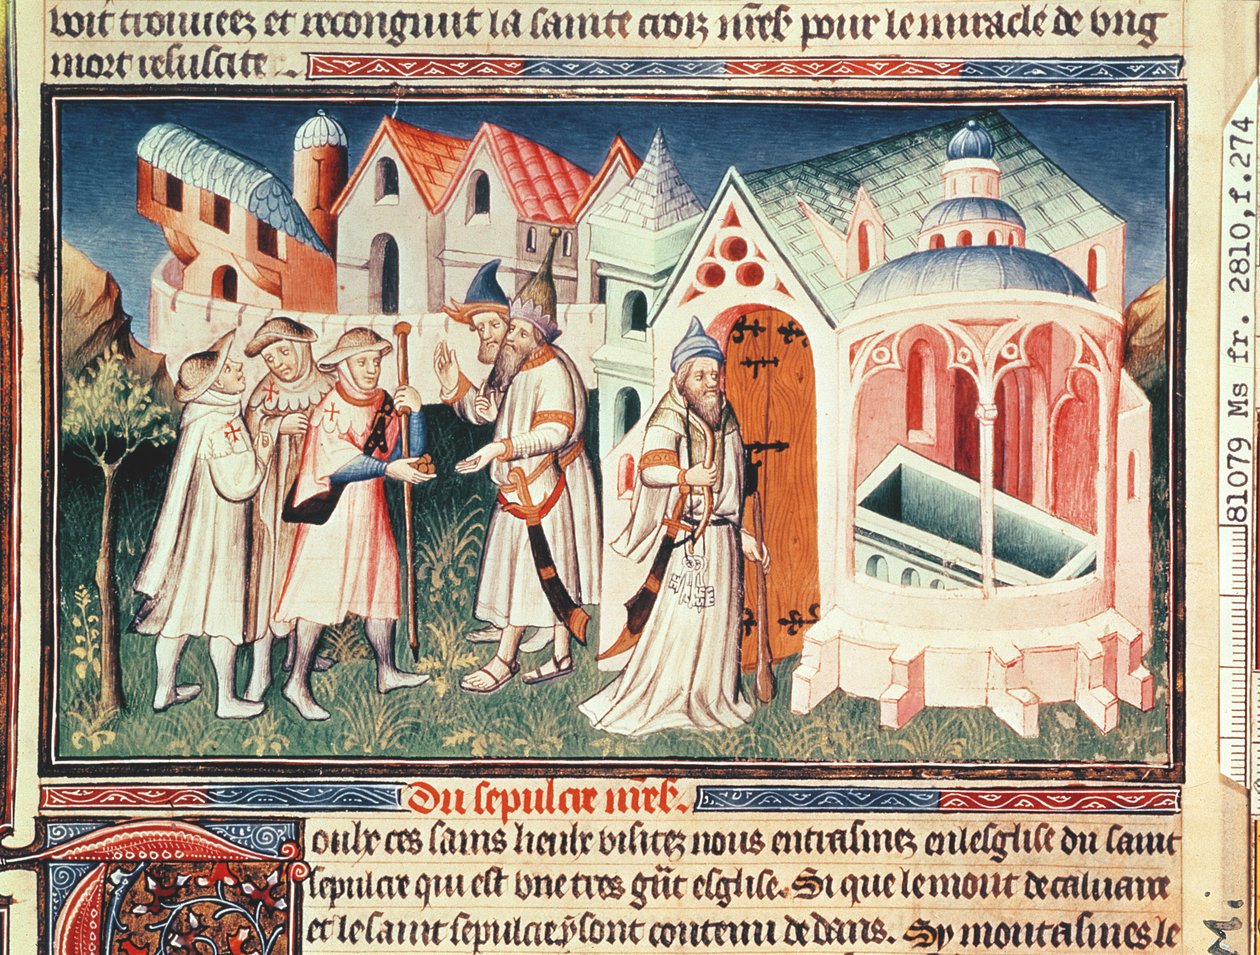 voit trouveez et recongnut la sainte croiz nr̃es̃ pour le miracle de ung
mort resuscite
Du sepulcre nr̃es̃.
Toulx ces sains lieulx visitez nous entrasmez en lesglise du saint
sepulcre qui est une tres grãt esglise. Si que le mont de calvaire
et le saint sepulcre y sont contenu dedans. Sy montasmes le
81079 Ms fr. 2810,f.274
M.